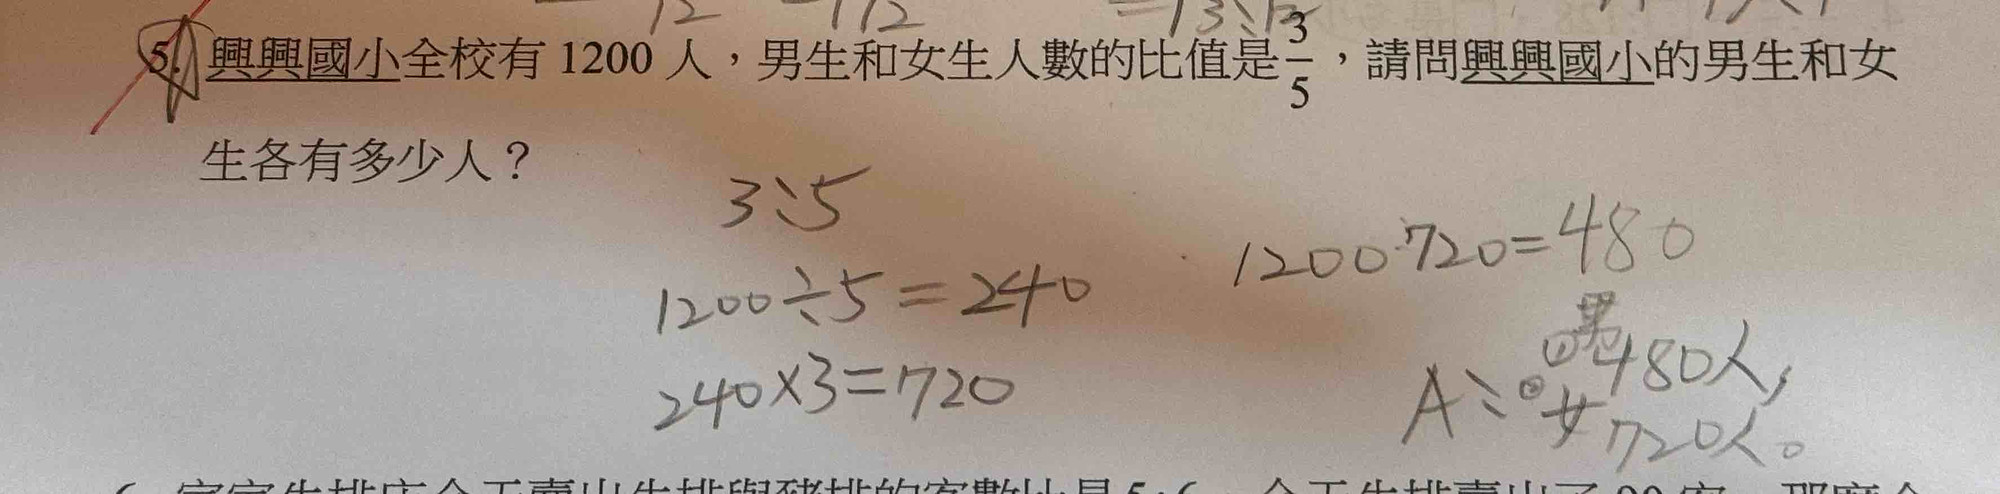 5. 興興國小全校有 1200 人，男生和女生人數的比值是3/5，請問興興國小的男生和女
生各有多少人？
3:5
1200÷5=240
240×3=720
1200-720=480
A:①男480人,
②女720人。